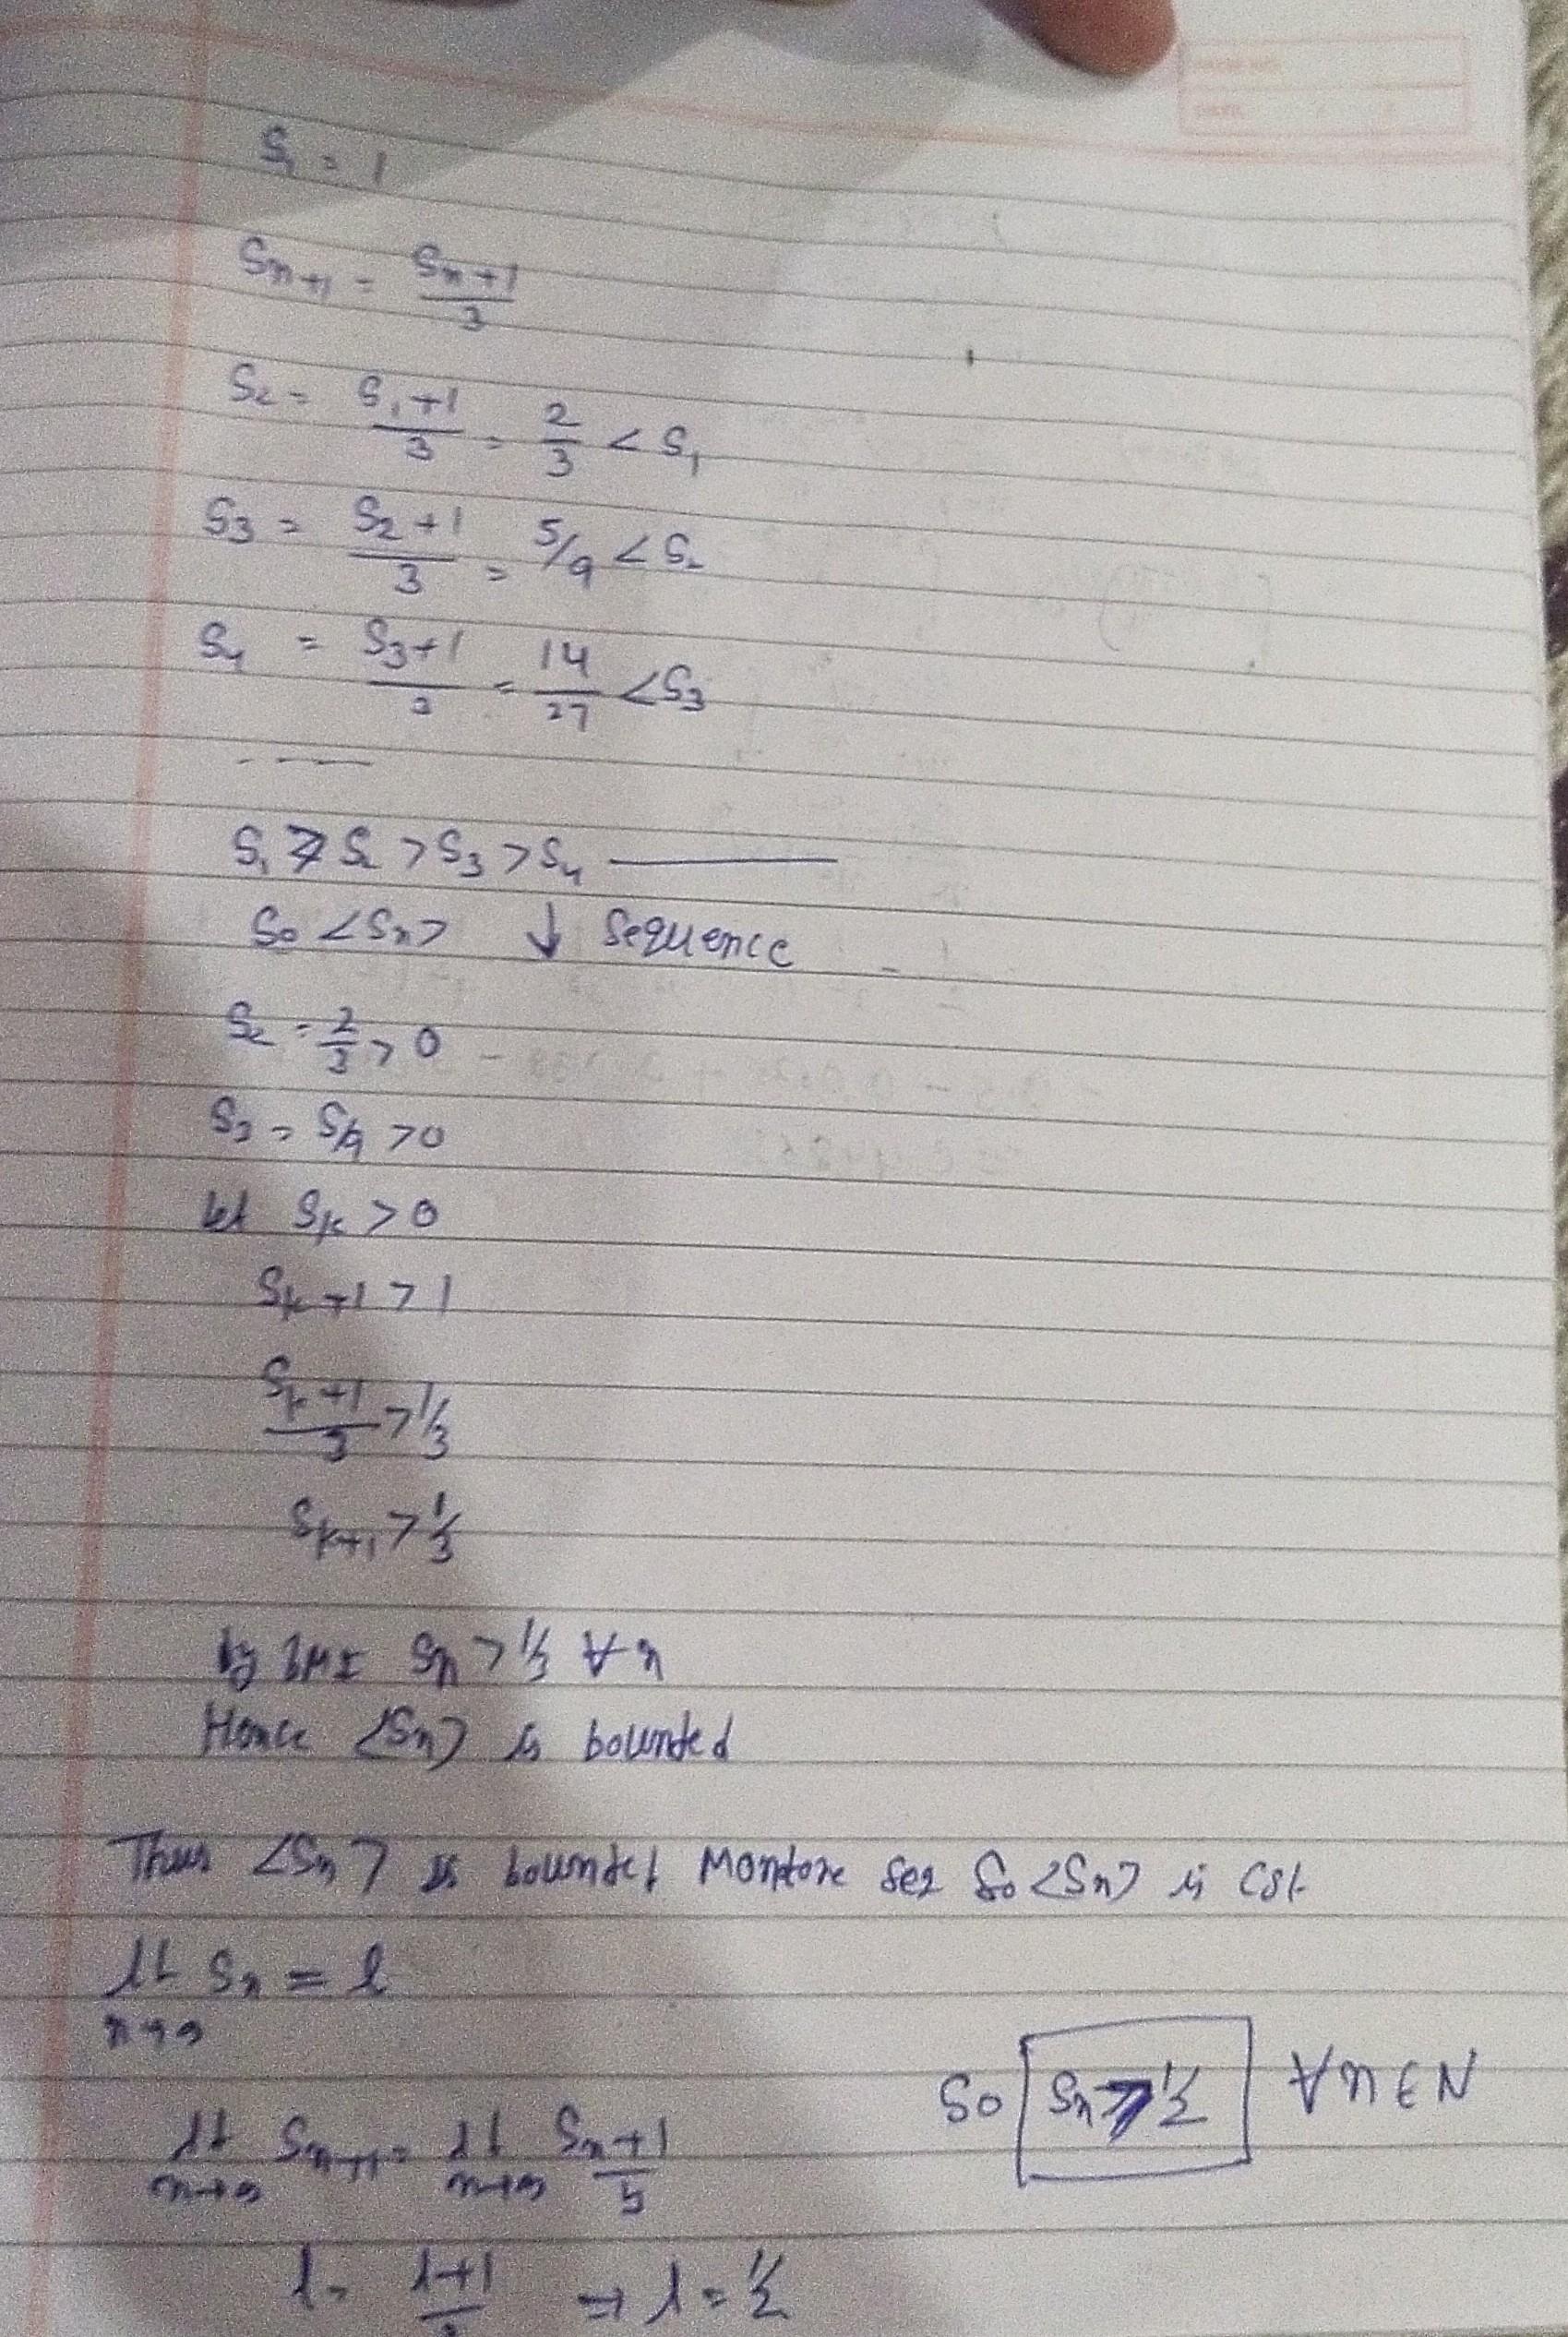 S₁ = 1
Sn+1 = (Sn+1)/3
S₂ = (S₁+1)/3 = 2/3 < S₁
S3 = (S2+1)/3 = 5/9 < S₂
S4 = (S3+1)/3 = 14/27 < S3
- - —
S₁ > S₂ > S3 > S4 ———
So <Sn> ↓ Sequence
S₂ = 2/3 > 0
S3 = 5/9 > 0
let Sk > 0
Sk +1 > 1
(Sk +1)/3 > 1/3
Sk+1 > 1/3
by PMI Sn > 1/3 ∀ n
Hence <Sn> is bounded
Thus <Sn> is bounded Monotone seq So <Sn> is cgt
lt n→∞ Sn = l
So Sn > 1/2 ∀ n ∈ N
lt n→∞ Sn+1 = lt n→∞ (Sn+1)/3
l = (l+1)/3 ⇒ l = 1/2